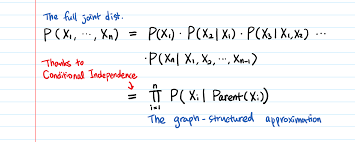 The full joint dist.
P(X₁, ⋯, Xₙ) = P(X₁) · P(X₂|X₁) · P(X₃|X₁,X₂) ⋯
· P(Xₙ|X₁, X₂, ⋯, Xₙ₋₁)
Thanks to
Conditional Independence
= ∏ᵢ₌₁ⁿ P(Xᵢ | Parent(Xᵢ))
The graph-structured approximation